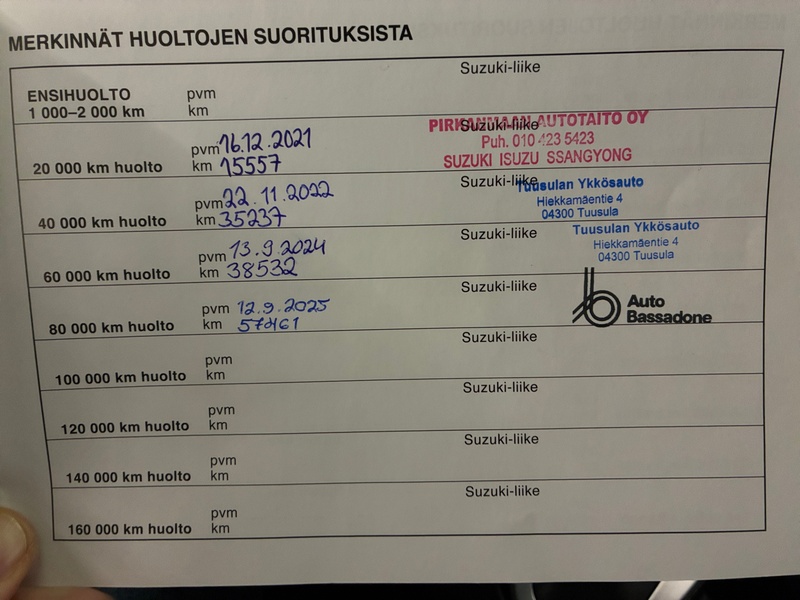 MERKINNÄT HUOLTOJEN SUORITUKSISTA
Suzuki-liike
ENSIHUOLTO pvm
1 000–2 000 km km
Suzuki-liike
PIRKANMAAN AUTOTAITO OY
Puh. 010 423 5423
SUZUKI ISUZU SSANGYONG
pvm 16.12.2021
20 000 km huolto km 15557
Suzuki-liike
Tuusulan Ykkösauto
Hiekkamäentie 4
04300 Tuusula
pvm 22.11.2022
40 000 km huolto km 35237
Suzuki-liike
Tuusulan Ykkösauto
Hiekkamäentie 4
04300 Tuusula
pvm 13.9.2024
60 000 km huolto km 38532
Suzuki-liike
Auto
Bassadone
pvm 12.9.2025
80 000 km huolto km 57461
Suzuki-liike
pvm
100 000 km huolto km
Suzuki-liike
pvm
120 000 km huolto km
Suzuki-liike
pvm
140 000 km huolto km
Suzuki-liike
pvm
160 000 km huolto km